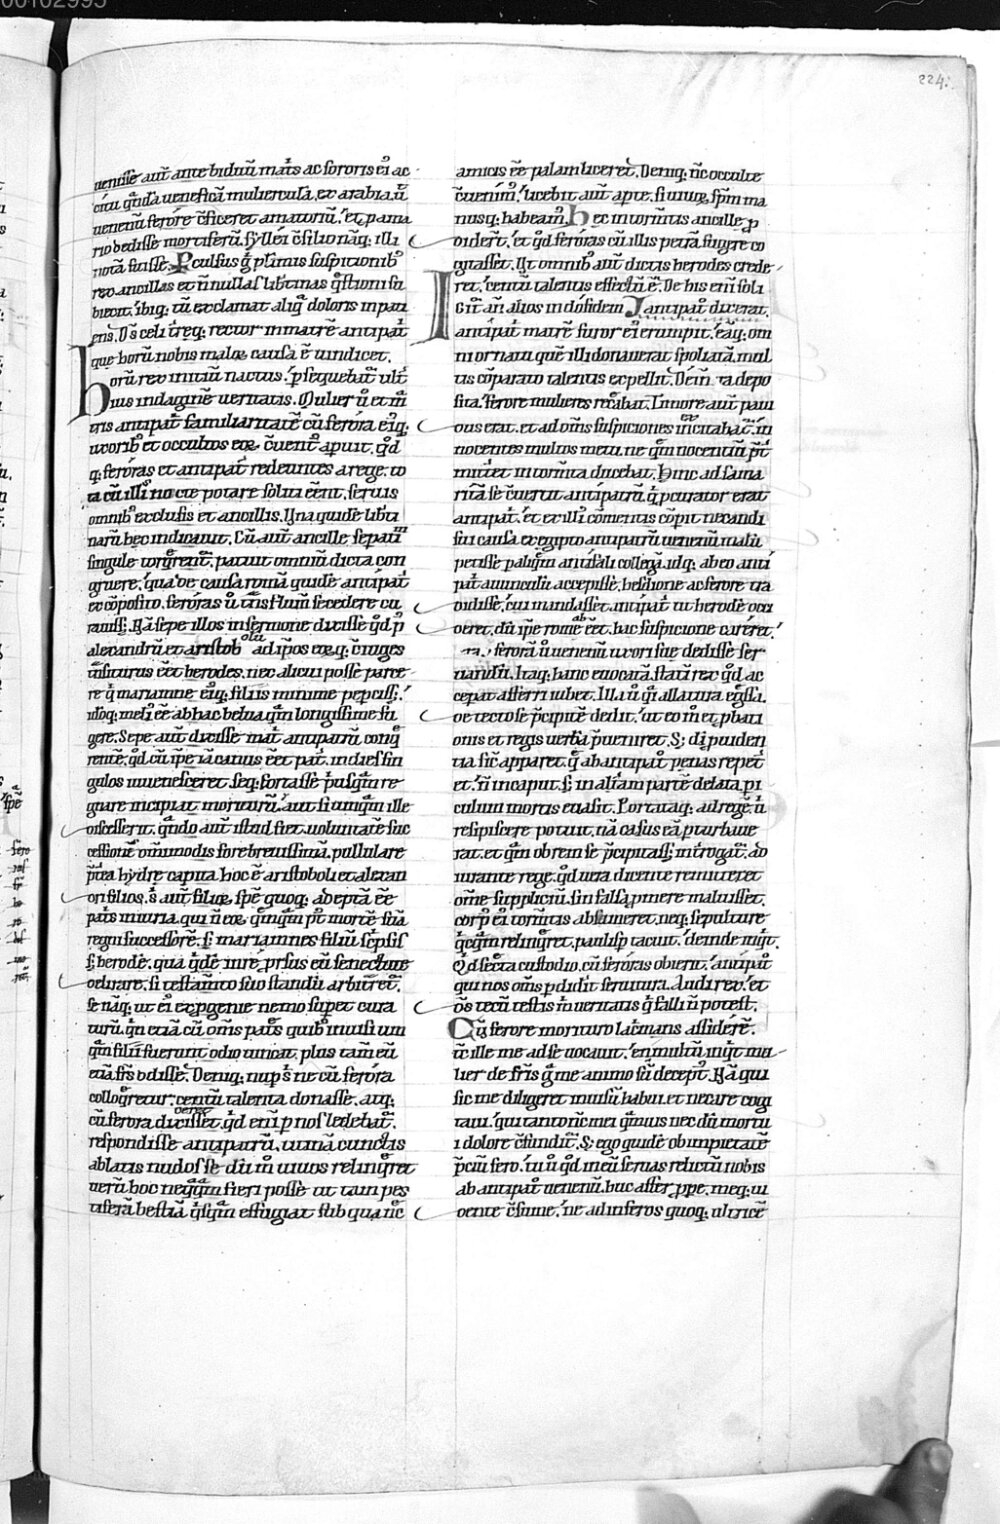 224.
uenisse aut̄ ante biduū mat̃s ac sororis ei᾽ ac
citu q̄nda uenefica muliercula. ex arabia. ū̃
uenenū ferore c̄ficeret amatoriū. et p̱ ama
rio dedisse mortiferū. syllei c̄silio nāq; illi
notā fuisse. Pculsus g̃ plimis suspitionib᾽
rex ancillas et n̄nullas lib̃tinas q̄stioni su
biecit. ibiq; cū exclamat aliq̃ doloris inpati
ens. Ds̄ celi t̃req; rector in matrē antipat̃
que horū nobis maloꝝ causa ē uindicet.
horū rex initiū nactus. p̱sequebat̃ ult̃
ius indaginē ueritatis. Mulier ū̃ et m̃
tris antipat̃ familiaritatē cū ferora eiq;
uxorib᾽ et occultos eoꝝ c̄uent᾽ apuit. q̃d
q; feroras et antipat̃ redeuntes a rege. to
ta cū illi᾽ nocte potare soliti eēnt. seruis
omnib᾽ exclusis et ancillis. Una quidē lib̃ti
narū hec indicauit. Cū aut̄ ancille sepati᾽
singule torq̃rent̃. patuit omniū dicta con
gruere. qua de causa romā quidē antipat̃
ex cōposito. feroras ū̃ t̃ns flum̄ secedere cu
rauiss;. Nā sepe illos in sermone dixisse q̃d p̱
alexandrū et aristobolū ad ip̄os eoꝝq; c̄iuges
t̃nsiturus eēt herodes. nec alicui posse parce
re q̃ mariamne eiq; filiis minime pep̱ciss;.
ideoq; meli᾽ eē ab hac belua q̄m longissime fu
gere. Sepe aut̄ dixisse mat̃ antipatrū conq̃
rentē. q̃d cū ip̄e iā canus eēt pat̃. in dies sin
gulos iuuenesceret. seq; fortasse p̱usq̄m re
gnare incipiat moriturū. aut si umq̄m ille
discesserit. q̃ndo aut̄ istud fiet. uoluntatē suc
cessionē om̄imodis fore breuissimā. pullulare
p̄tea hydre capita. hoc ē aristoboli et alexan
dri filios. s᾽ aut̄ filioꝝ spē quoq; adeptā eē
pat̃s iniuria. qui n̄ eoꝝ q̄mq̄m p̱t mortē suā
regni successorē. s; mariamnes filiū sc̃psis
s; herodē. qua q̃dē in re prsus eū senectute
delirare. si testam̄to suo standū arbitret̃.
se nāq; ut ei᾽ ex ꝓgenie nemo sup̱et cura
turū. q̃n etiā cū om̄s pat̃s quib᾽ inuisi um
q̄m filii fuerunt odio uincat. plus tam̄ eū
etiā fr̄s odisse. Deniq; nup̱ s᾽ ne cū ferora
colloq̃retur. centū talenta donasse. atq;
cū ferora dixisset. q̃d eni᾽ p̱ nos ledebat̃.
respondisse antipatrū. utinā cunctis
ablatis nudos se dū m̄ uiuos relinq̃ret
uerū hoc neq̃q̄m fieri posse ut tam pes
tiferā bestiā q̃sq̄m effugiat sub qua n̄c
amicis eē palam liceret. Deniq; n̄c occulte
c̄uenim᾽. licebit aut̄ apte. si uiroꝝ sp̄m ma
nusq; habeam᾽. hec in tormtis ancille p̱
didert̃. et q̃d feroras cū illis petrā fugere co
gitasset. Ut omnib᾽ aut̄ dictis herodes crede
ret. centū talentis effectū ē. De his enī soli
Git̃ an̄ alios in dosidem
Jantipat̃ dixerat.
antipat̃ matrē furor ei᾽ erumpit. eāq; om
ni ornatu quē illi donauerat spoliatā. mul
tis cōparato talentis expellit. Dein ta depo
sita. ferore mulieres recābat. Timore aut̄ paui
dus erat. et ad om̄s suspiciones incitabat̃. in
nocentes multos metu. ne q̄m nocentiū p̱t
mitt̃et in tormta ducebat. Hinc ad sama
ritā se c̄uertit antipatrū. q̃ pcurator erat
antipat̃. et ex illi᾽ tormentis cōpit necandi
sui causa ex egypto antipatrū uenenū misisse
petisse paliq̄m antifali collegā. idq; ab eo anti
pat̃ auunculū accepisse. besdione ac ferore tra
didisse. cui mandasset antipat̃ ut herodē occi
deret. dū ip̄e rome ab eēt. hac suspicione careret.
ferorā ū̃ uenenū uxori sue dedisse ser
uandū. Itaq; hanc euocatā statī rex q̃d ac
cepat afferri iubet. Illa ū̃ q̃i allatura egressa.
de tecto se p̄cipitē dedit. ut eo m̄ et ꝓbati
onis et regis uerba p̄ueniret. S; di᾽ puiden
tia sic apparet. q̃ ab antipat̃ penas repet̃
et. n̄ in caput s; in alt̃am partē delata. pi
culum mortis euasit. Portataq; ad regē. ū̃
resipiscere potuit. nā casus eā p̱turbaue
rat. et q̄m ob rem se p̄cipitass; int̃rogat̃. ad
iurante rege. q̃d uera dicente remitteret
om̄e suppliciū. sin falsa pmere maluisset.
corp᾽ ei᾽ tormtis absumeret. neq; sepulture
q̃cq̄m relinq̃ret. paulisp̱ tacuit. deinde inq̃t.
Q̃d sec̃ta custodio. cū feroras obierit. antipat̃
qui nos om̄s p̱didit seruitura. Audi rex. et
ds̄ tecū testis m̄ ueritatis q̃ falli n̄ potest.
Cū ferore morituro lac̃mans assidere᾽.
tc̄ ille me ad se uocauit. en multū inq̃t mu
lier de fr̄is q̃ me animo sū decept᾽. Nā qui
sic me diligeret inuisū habui. et necare cogi
taui. qui tanto n̄c mei q̄muis nec dū mortu
i dolore c̄fundit̃. S; ego quidē ob impietatē
p̄ciū fero. tu ū̃ q̃d meū seruas relictū nobis
ab antipat̃ uenenū. huc affer ꝓpe. meq; ui
dente c̄sume. ne ad inferos quoq; ultricē